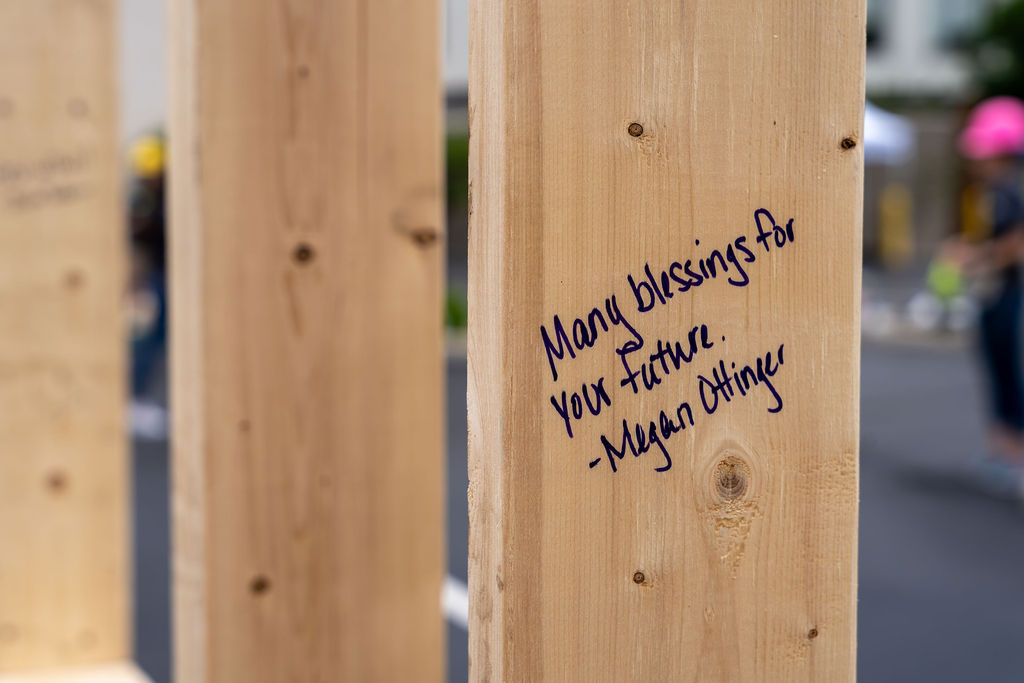 Many blessings for
your future.
-Megan Ottinger